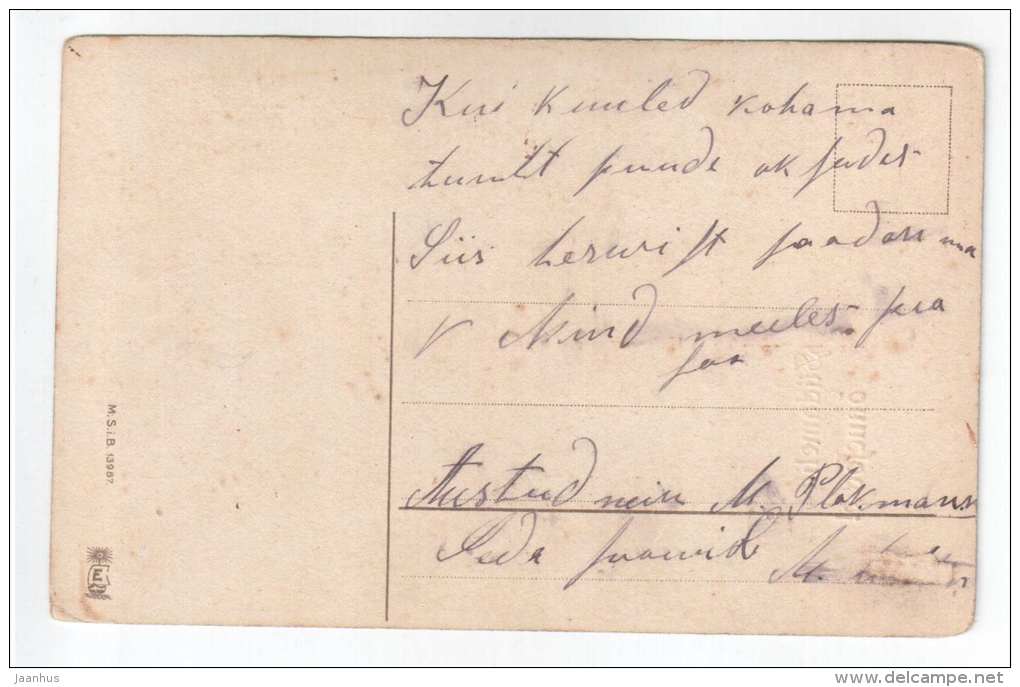 Kui kuuled kohama
tuult puude oksades
Siis terwist saadan ma
Mind meeles pea
Austud neiu M. Plokmann
Seda soowib M.
M.S.i.B. 13967
jaanhus
www.delcampe.net